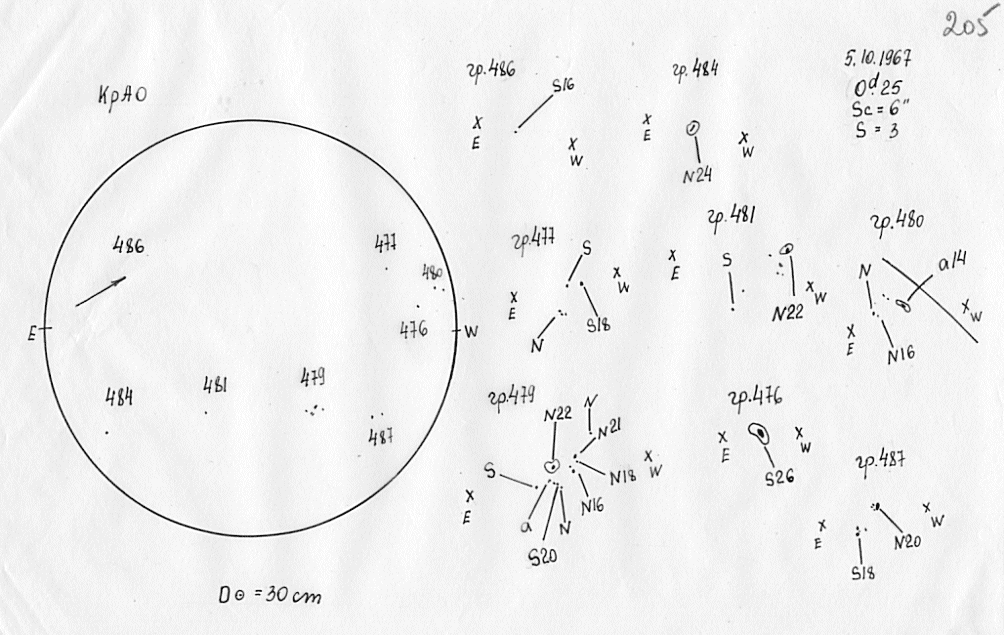 205
5.10.1967
0ᵈ25
Sc = 6"
S = 3
КрАО
486
477
480
476
E
W
484
481
479
487
D⊙ = 30 cm
гр.486
S16
X
E
X
W
гр.484
X
E
X
W
N24
гр.477
S
X
E
X
W
S18
N
гр.481
X
E
S
X
W
N22
гр.480
N
a14
X
W
X
E
N16
гр.479
N22
N
N21
S
X
W
N18
X
E
N16
a
N
S20
гр.476
X
E
X
W
S26
гр.487
X
E
X
W
N20
S18